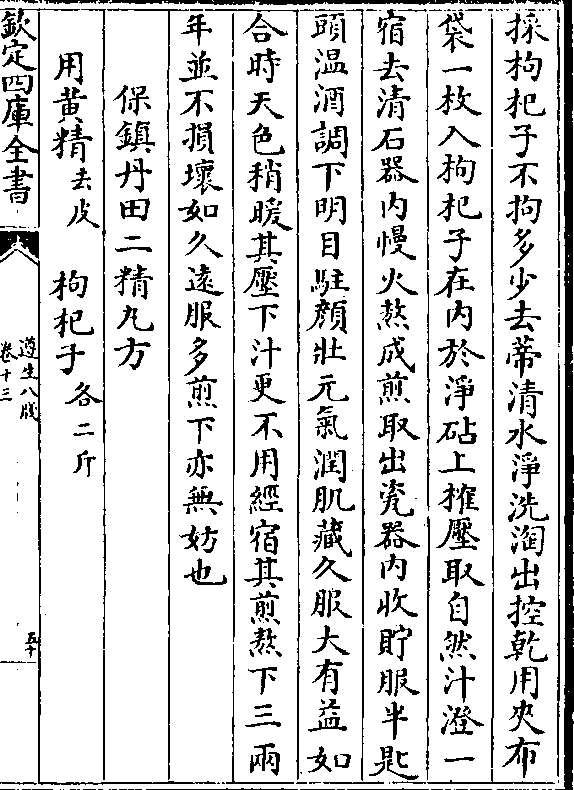 採枸杞子不拘多少去蒂清水淨洗淘出控乾用夾布
袋一枚入枸杞子在內於淨砧上搉壓取自然汁澄一
宿去清石器內慢火熬成煎取出瓷器內收貯服半匙
頭温酒調下明目駐顏壯元氣潤肌藏久服大有益如
合時天色稍暖其壓下汁更不用經宿其煎熬下三兩
年並不損壞如久遠服多煎下亦無妨也
保鎮丹田二精丸方
用黃精去皮 枸杞子各二斤
欽定四庫全書
遵生八牋
卷十三
五十